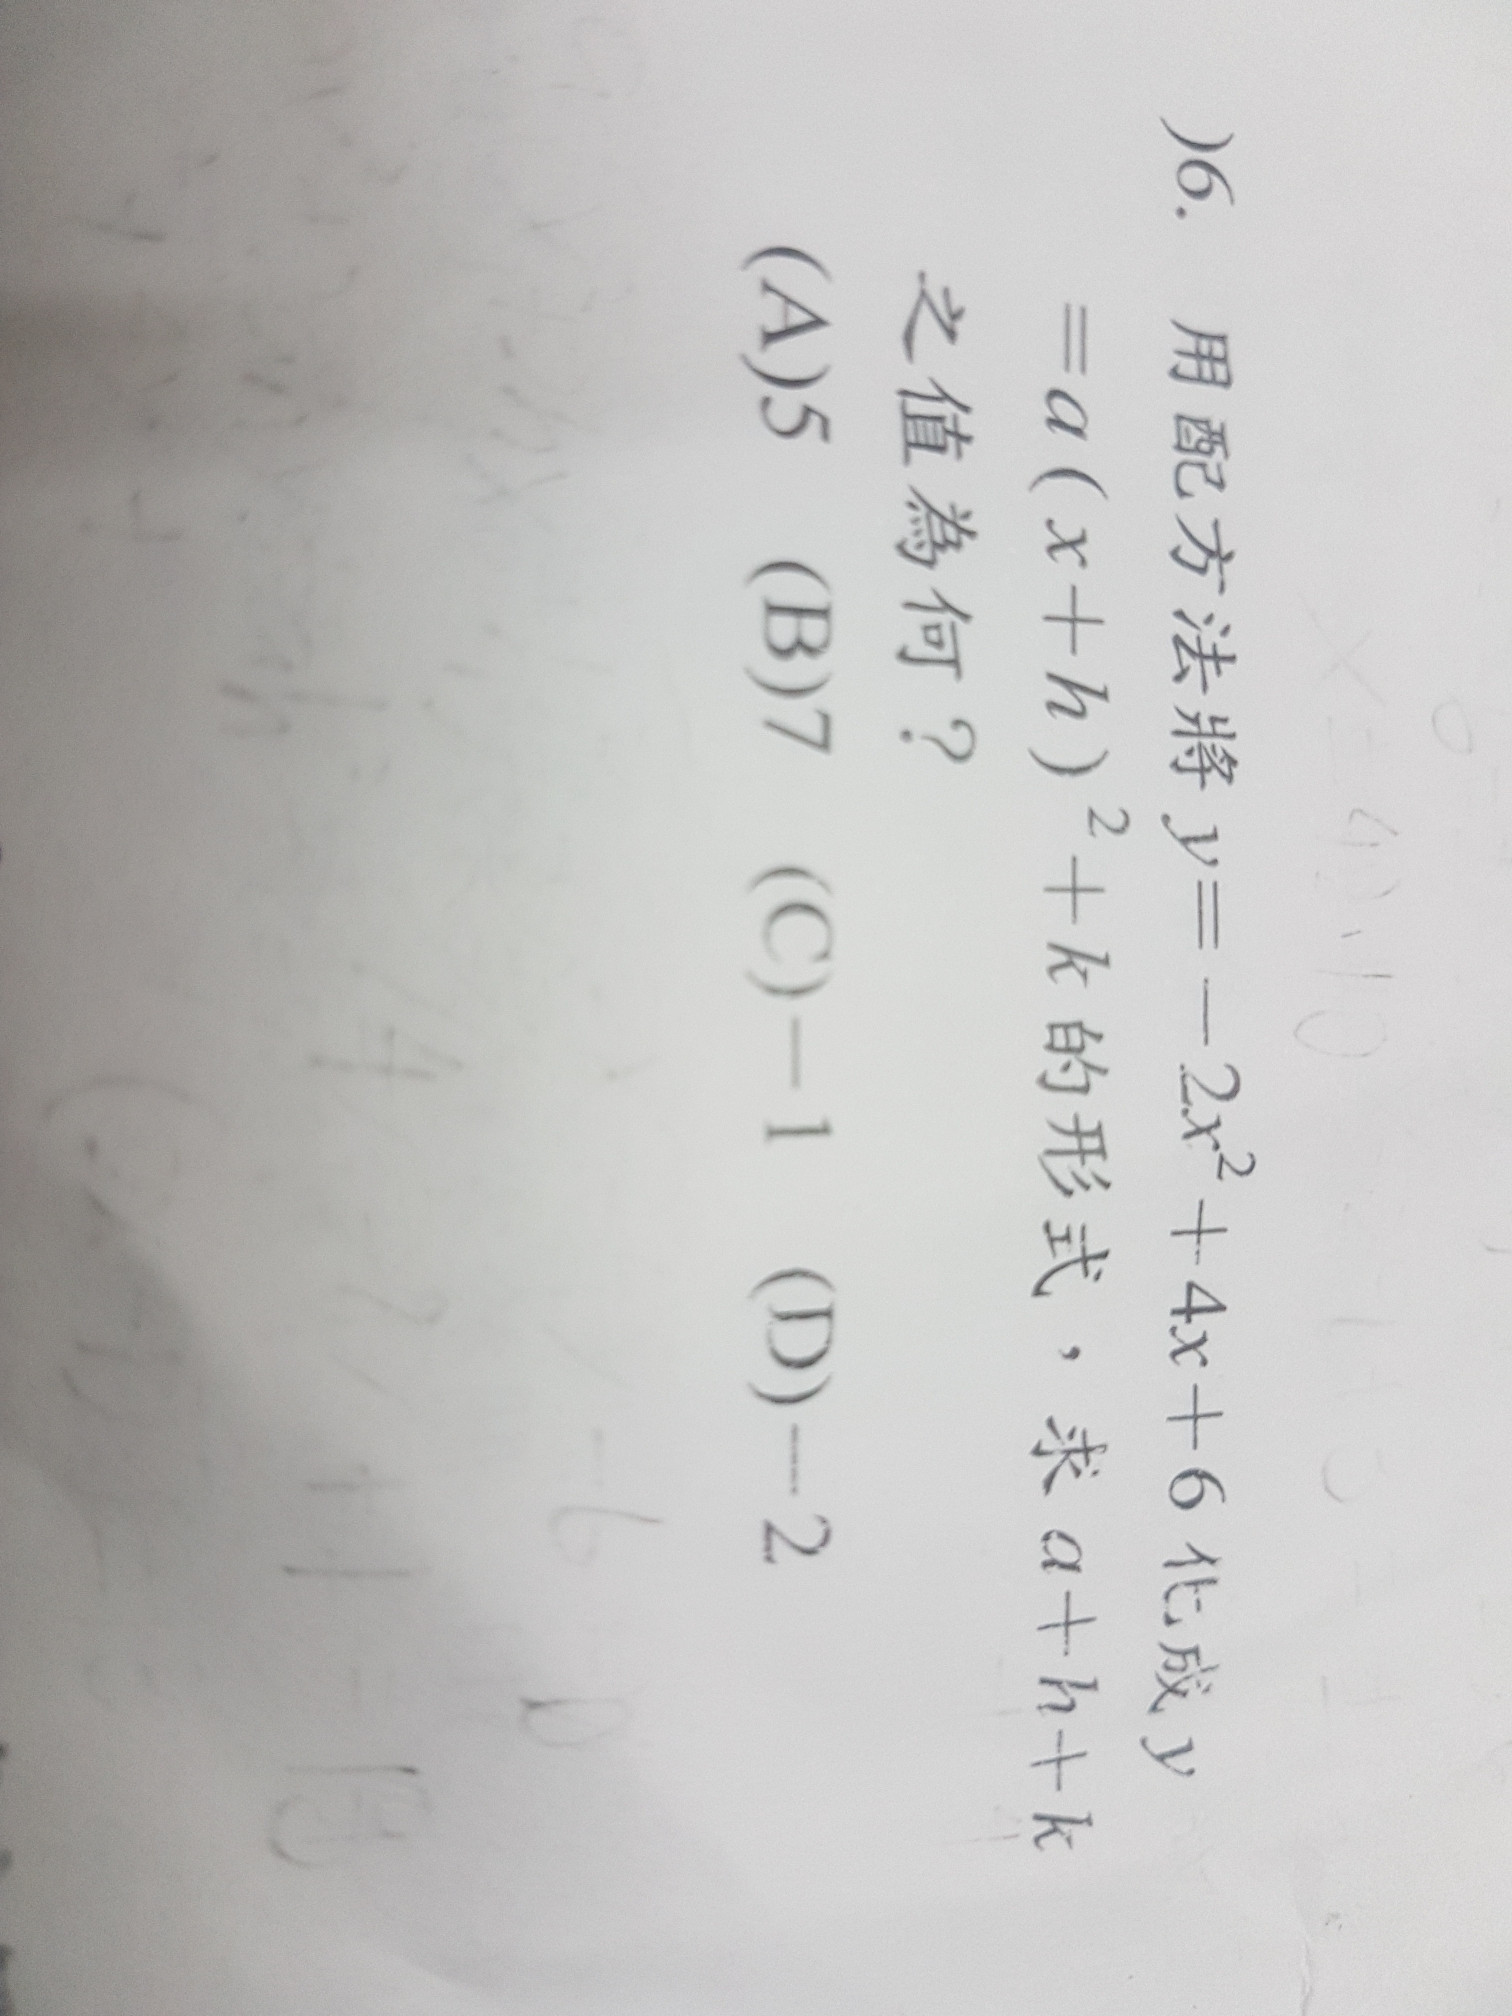 )6. 用配方法將y=-2x²+4x+6化成y
=a(x+h)²+k的形式,求a+h+k
之值為何?
(A)5 (B)7 (C)-1 (D)-2